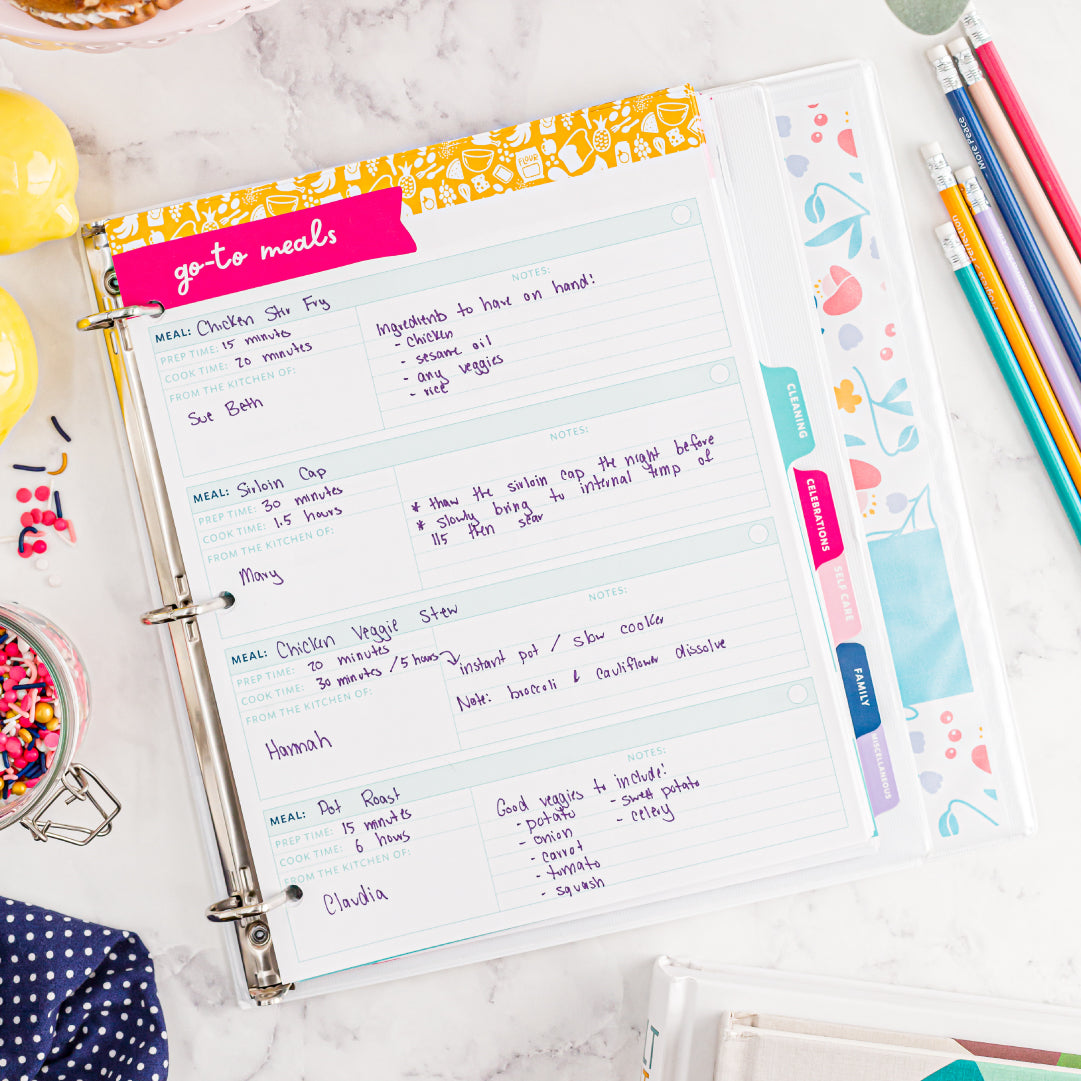 FLOUR
go-to meals
MEAL: Chicken Stir Fry
PREP TIME: 15 minutes
COOK TIME: 20 minutes
FROM THE KITCHEN OF:
Sue Beth
NOTES:
Ingredients to have on hand:
- chicken
- sesame oil
- any veggies
- rice
MEAL: Sirloin Cap
PREP TIME: 30 minutes
COOK TIME: 1.5 hours
FROM THE KITCHEN OF:
Mary
NOTES:
* thaw the sirloin cap the night before
* slowly bring to internal temp of
115 then sear
MEAL: Chicken Veggie Stew
PREP TIME: 20 minutes
COOK TIME: 30 minutes / 5 hours
FROM THE KITCHEN OF:
Hannah
NOTES:
instant pot / slow cooker
Note: broccoli & cauliflower dissolve
MEAL: Pot Roast
PREP TIME: 15 minutes
COOK TIME: 6 hours
FROM THE KITCHEN OF:
Claudia
NOTES:
Good veggies to include:
- potato
- onion
- carrot
- tomato
- squash
- sweet potato
- celery
CLEANING
CELEBRATIONS
SELF CARE
FAMILY
MISCELLANEOUS
More Peace